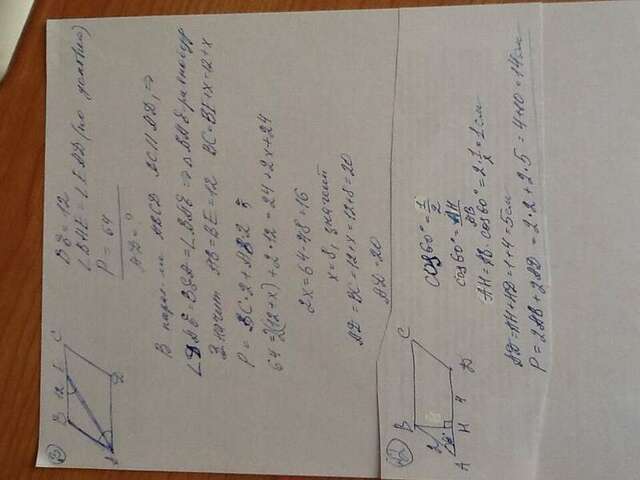 B 12 E C
BE = 12
∠BAE = ∠EAD (по условию)
P = 64
AD = ?
В парал-ме ABCD BC || AD, ⇒
Значит AB = BE = 12 BC = BE + x = 12 + x
P = BC·2 + AB·2
64 = 2(12+x) + 2·12 = 24 + 2x + 24
2x = 64 - 48 = 16
x = 8, значит
AD = BC = 12 + x = 12 + 8 = 20
AD = 20
B C
A H 4 D
cos 60° = 1/2
cos 60° = AH/AB
AH = AB · cos 60° = 2 · 1/2 = 1 см
AD = AH + HD = 1 + 4 = 5 см
P = 2AB + 2AD = 2·2 + 2·5 = 4 + 10 = 14 см